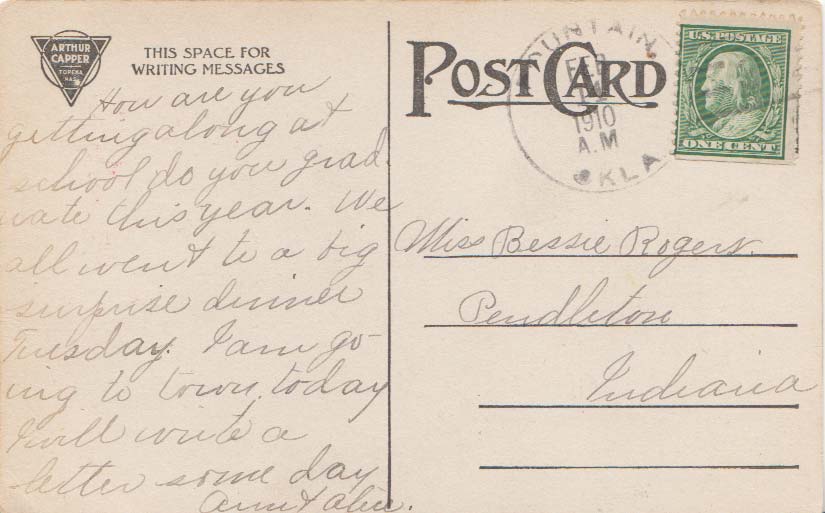 ARTHUR
CAPPER
TOPEKA
KAS.
THIS SPACE FOR
WRITING MESSAGES
How are you
getting along at
school do you grad-
uate this year. We
all went to a big
surprise dinner
Tuesday. I am go-
ing to town today
I will write a
letter some day
Aunt
POST CARD
OUNTAIN
FEB
1910
A.M
OKLA
U.S. POSTAGE
ONE CENT
Miss Bessie Rogers.
Pendleton
Indiana